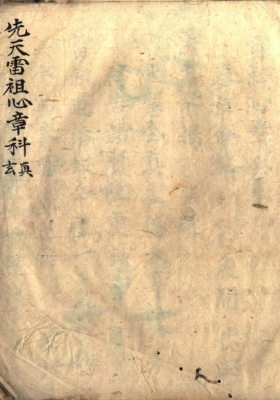 先天雷祖心章科
玄真